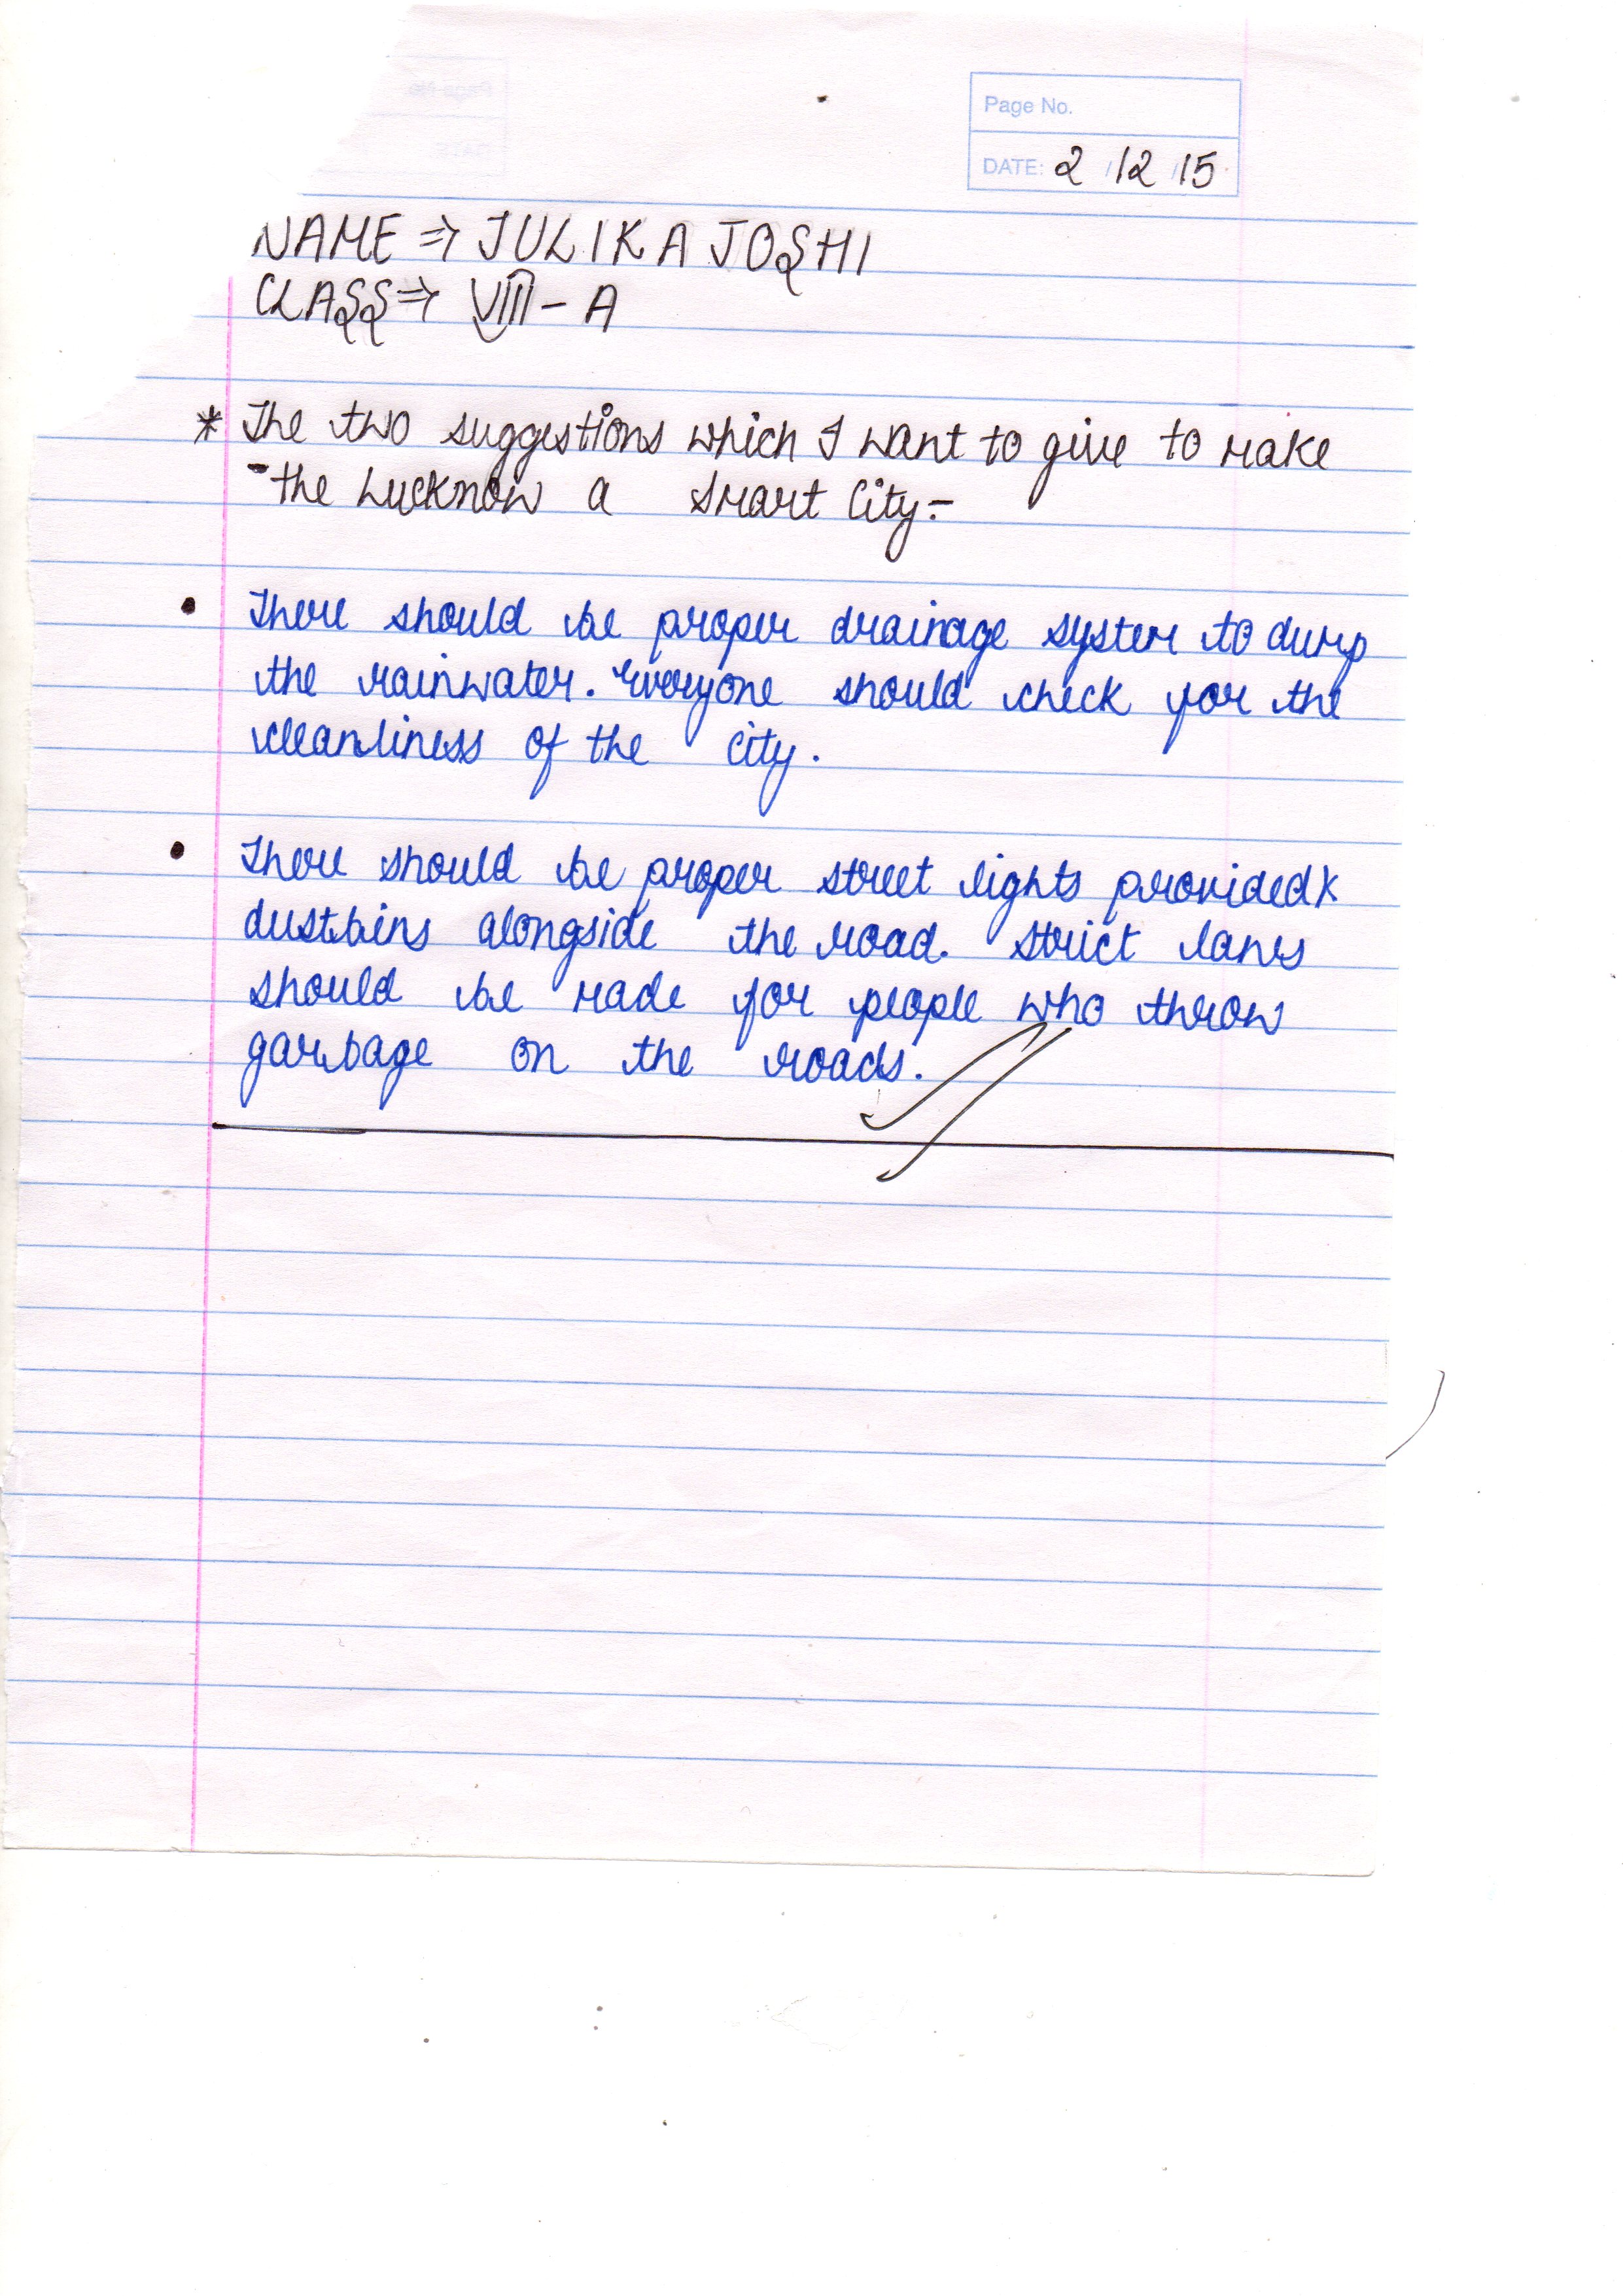 Page No.
DATE: 2/12/15
NAME ⇒ JULIKA JOSHI
CLASS ⇒ VIII - A
* The two suggestions which I want to give to make
the Lucknow a smart City :-
• There should be proper drainage system to dump
the rainwater. Everyone should check for the
cleanliness of the city.
• There should be proper street lights provided &
dustbins alongside the road. Strict laws
should be made for people who throw
garbage on the roads.